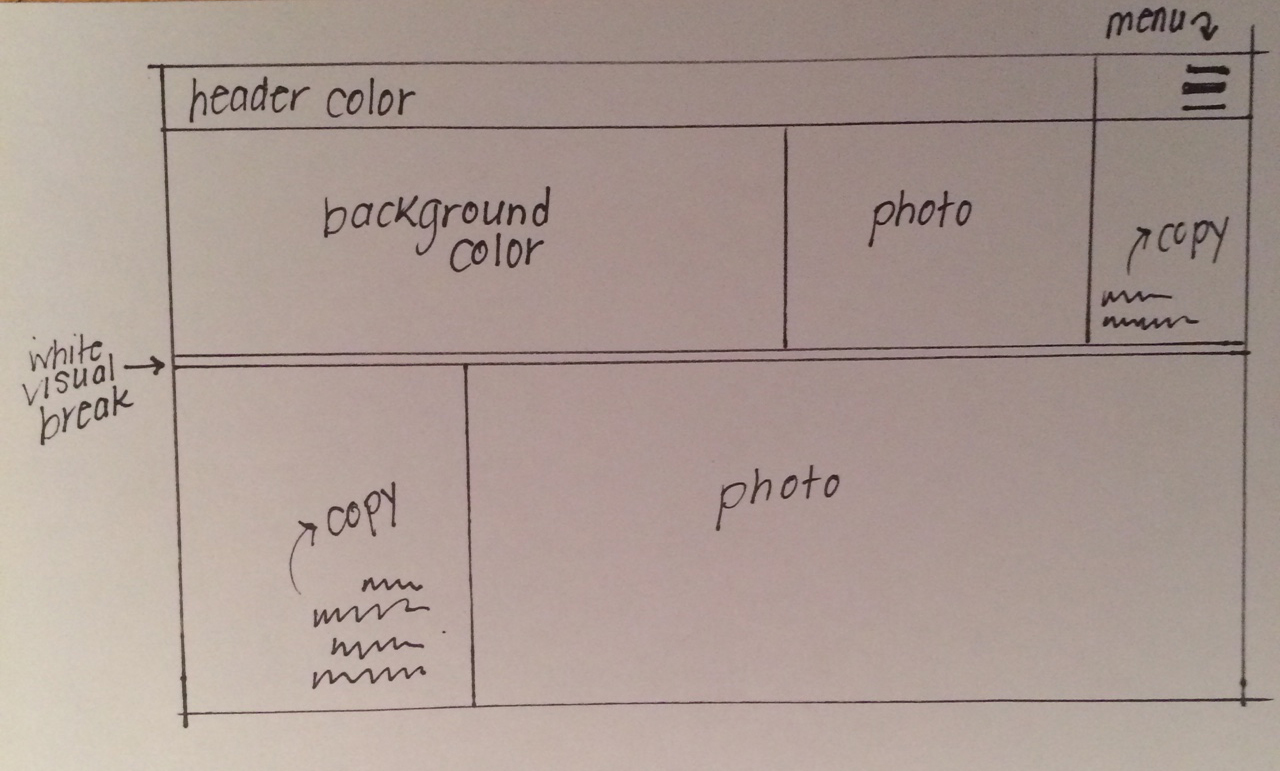 menu
header color
background
color
photo
copy
white
visual
break
copy
photo